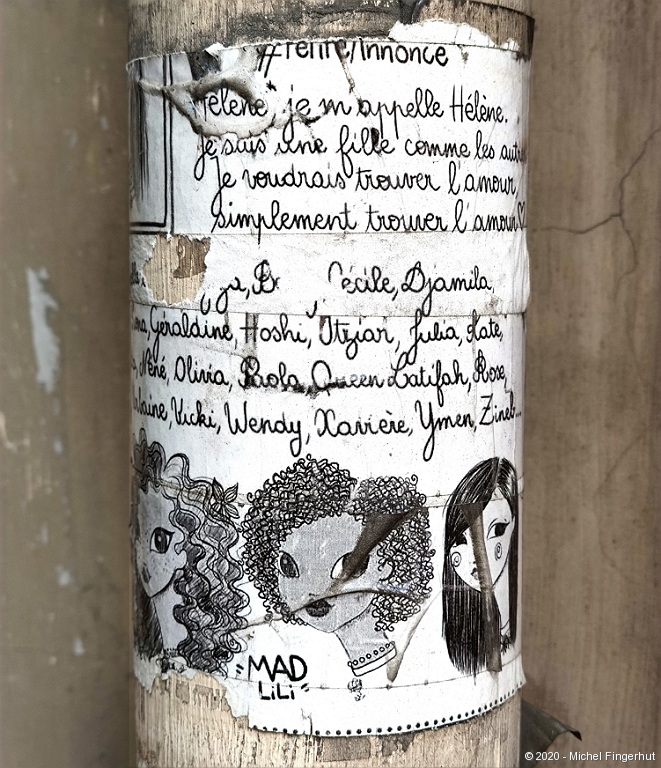 je m'appelle Hélène.
Je suis une fille comme les
Je voudrais trouver l'amour
simplement trouver l'amour
Cécile, Djamila,
Géraldine, Hoshi, Itziar, Julia, Kate,
Néné, Olivia, Paola, Queen Latifah, Rose,
Vicki, Wendy, Xavière, Ymen, Zineb...
MAD
LiLi
© 2020 - Michel Fingerhut